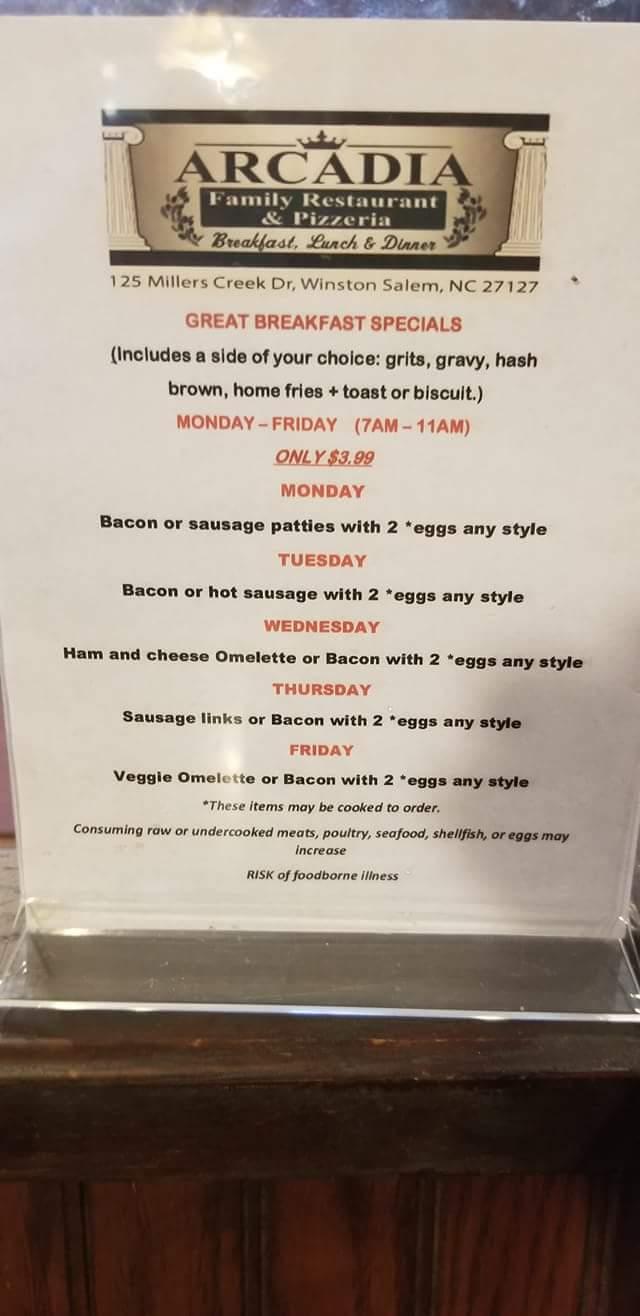 ARCADIA
Family Restaurant
& Pizzeria
Breakfast, Lunch & Dinner
125 Millers Creek Dr, Winston Salem, NC 27127
GREAT BREAKFAST SPECIALS
(Includes a side of your choice: grits, gravy, hash
brown, home fries + toast or biscuit.)
MONDAY – FRIDAY (7AM – 11AM)
ONLY $3.99
MONDAY
Bacon or sausage patties with 2 *eggs any style
TUESDAY
Bacon or hot sausage with 2 *eggs any style
WEDNESDAY
Ham and cheese Omelette or Bacon with 2 *eggs any style
THURSDAY
Sausage links or Bacon with 2 *eggs any style
FRIDAY
Veggie Omelette or Bacon with 2 *eggs any style
*These items may be cooked to order.
Consuming raw or undercooked meats, poultry, seafood, shellfish, or eggs may
increase
RISK of foodborne illness